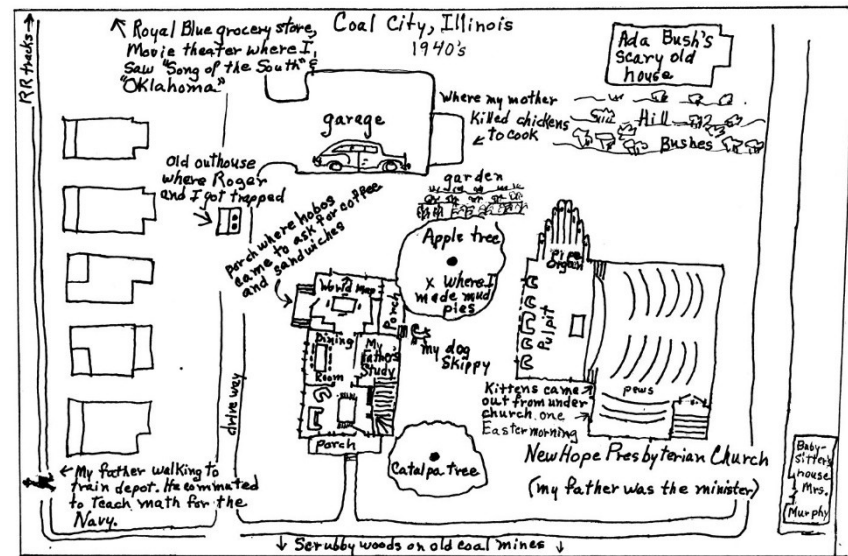 Coal City, Illinois
1940's
↖ Royal Blue grocery store,
Movie theater where I
Saw "Song of the South" &
"Oklahoma"
RR tracks →
Ada Bush's
scary old
house
where my mother
killed chickens
← to cook
Hill
Bushes
garage
Old outhouse
where Roger
and I got trapped
garden
porch where hobos
came to ask for coffee
and sandwiches
Apple tree
x where I
made mud
pies
Pipe
Organ
World Map
Porch
Pulpit
Dining
Room
My
Father's
Study
my dog
Skippy
pews
Kittens came
out from under
church one →
Easter morning
driveway
Porch
Catalpa tree
New Hope Presbyterian Church
(my father was the minister)
Baby-
Sitter's
house
Mrs.
Murphy
← My father walking to
train depot. He commuted
to Teach math for the
Navy.
↓ Scrubby woods on old coal mines ↓